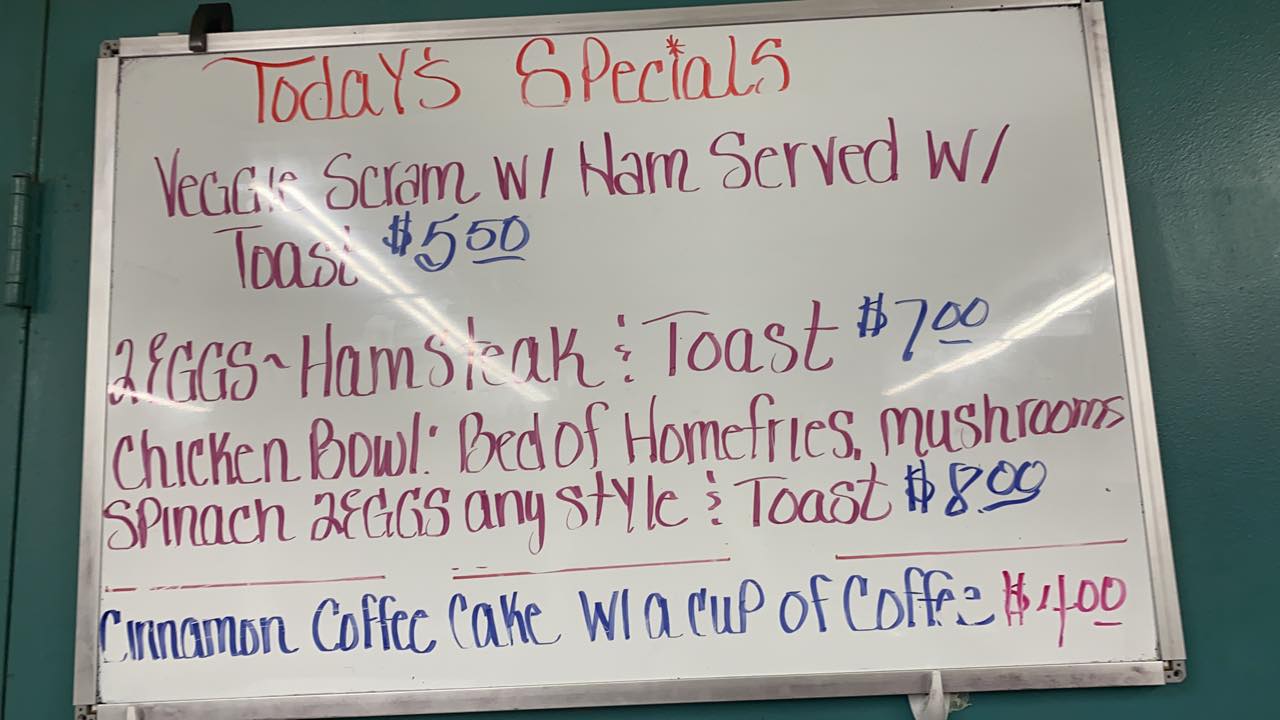 Today's Specials
Veggie Scram W/ Ham Served W/
Toast $5.50
2 EGGS ~ Ham Steak & Toast $7.00
Chicken Bowl: Bed of Homefries, mushrooms
Spinach 2 EGGS any style & Toast $8.00
Cinnamon Coffee Cake W/ a cup of Coffee $4.00